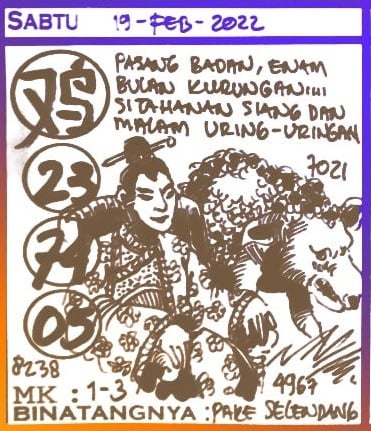 SABTU 19-FEB-2022
PASANG BADAN, ENAM
BULAN KURUNGAN...
SITAHANAN SIANG DAN
MALAM URING-URINGAN
7021
23
74
05
8238
4967
MK : 1-3
BINATANGNYA : PAKE SELENDANG